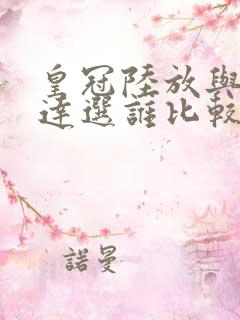 皇冠陸放與
達選誰比較
諾曼